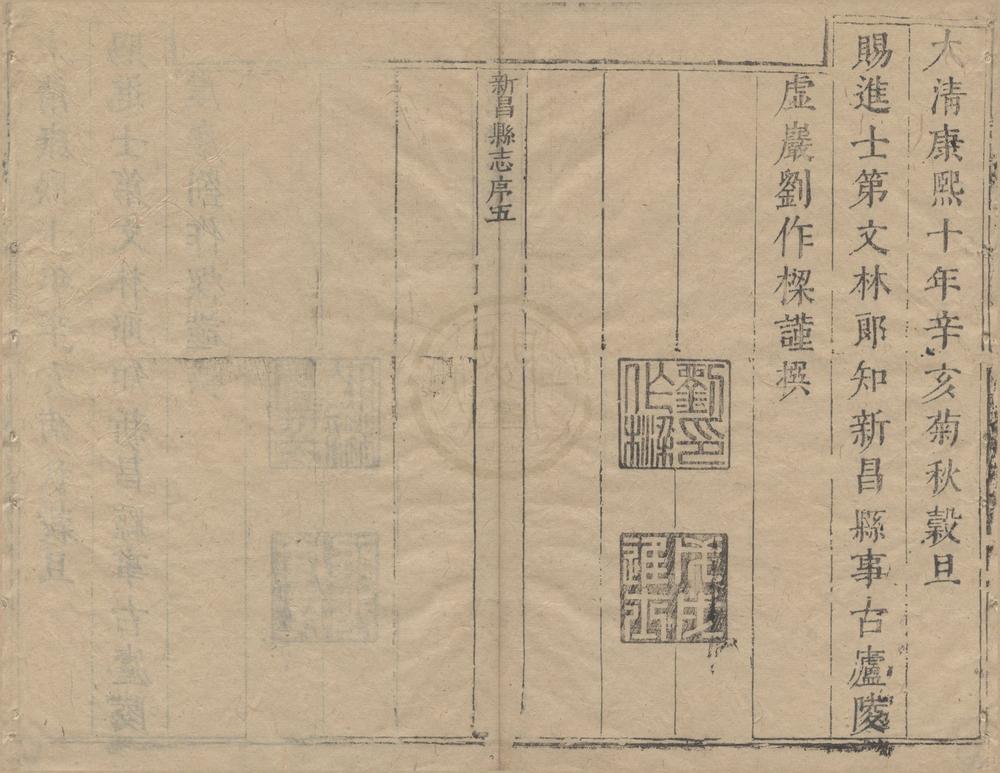 大清康熙十年辛亥菊秋穀旦
賜進士第文林郎知新昌縣事古廬陵
虛巖劉作樑謹撰
劉印作樑
新昌縣志序五